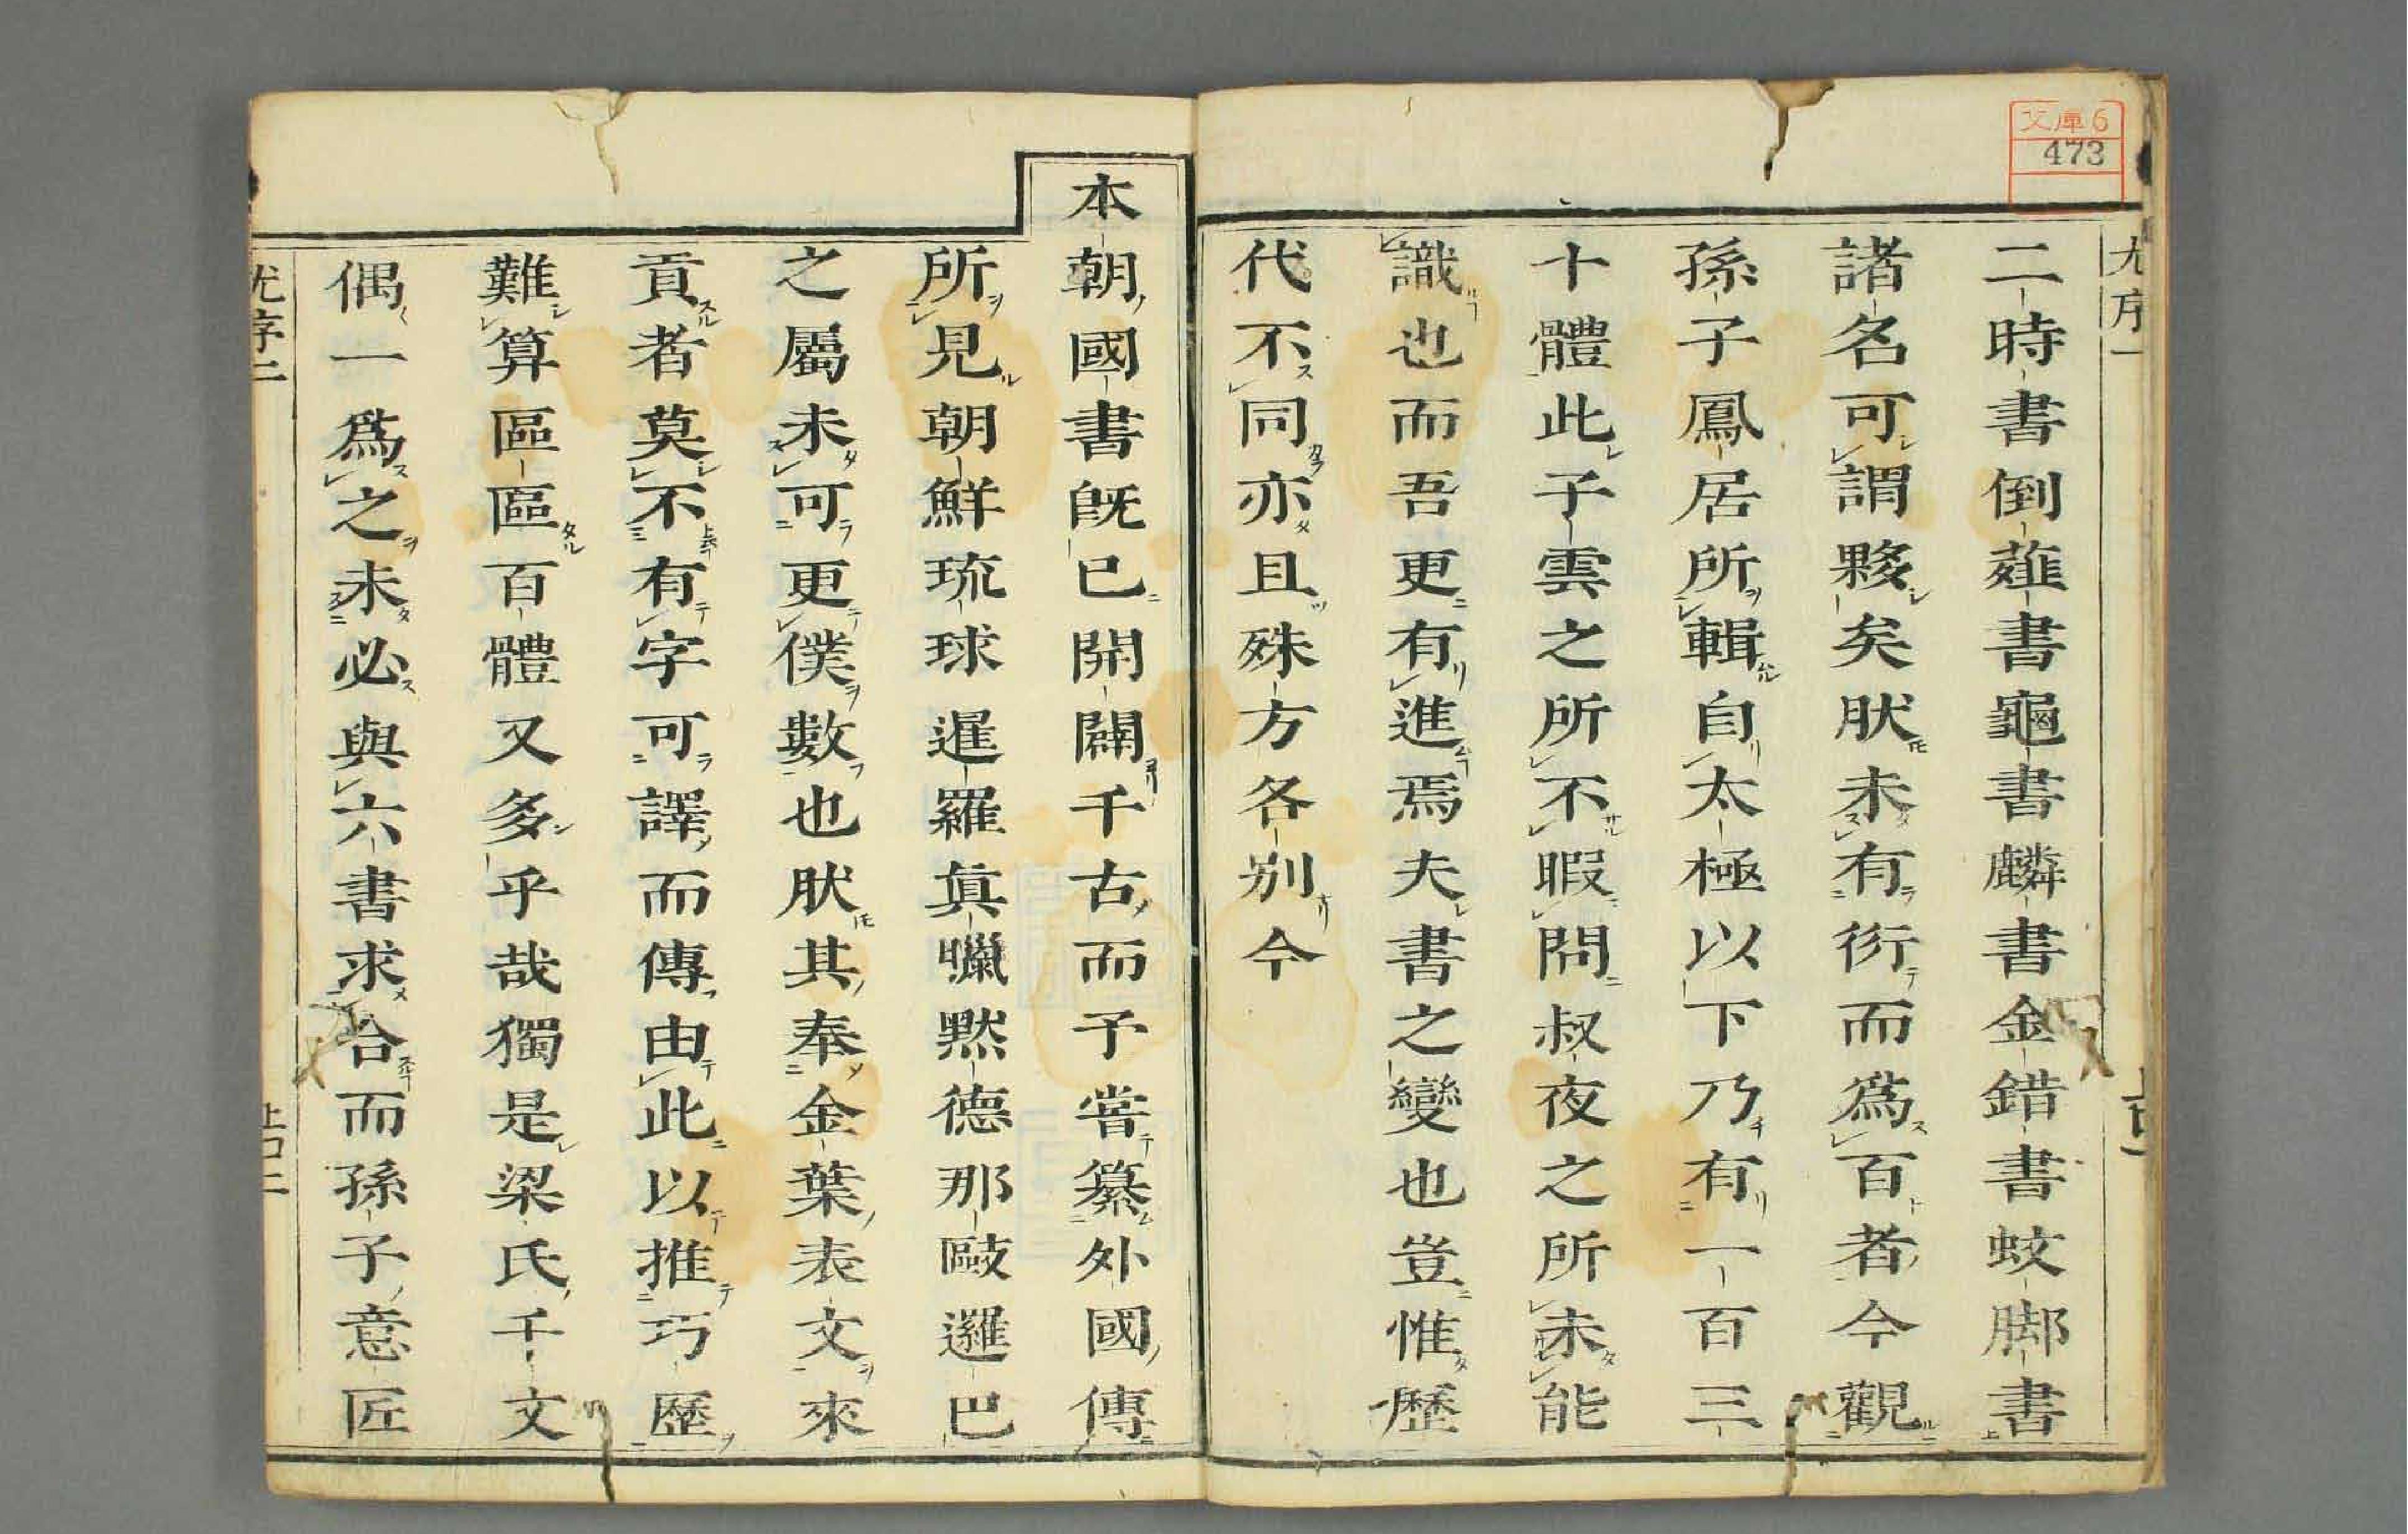 文庫6
473
二時書倒薤書龜書麟書金錯書蚊脚書
諸名可謂夥矣肰未有衍而爲百者今觀
孫子鳳居所輯自太極以下乃有一百三
十體此子雲之所不暇問叔夜之所未能
識也而吾更有進焉夫書之變也豈惟歷
代不同亦且殊方各別今
本朝國書旣已開闢千古而予嘗纂外國傳
所見朝鮮琉球暹羅眞臘黙德那毆邏巴
之屬未可更僕數也肰其奉金葉表文來
貢者莫不有字可譯而傳由此以推巧歷
難算區區百體又多乎哉獨是梁氏千文
偶一爲之未必與六書求合而孫子意匠
尤序二